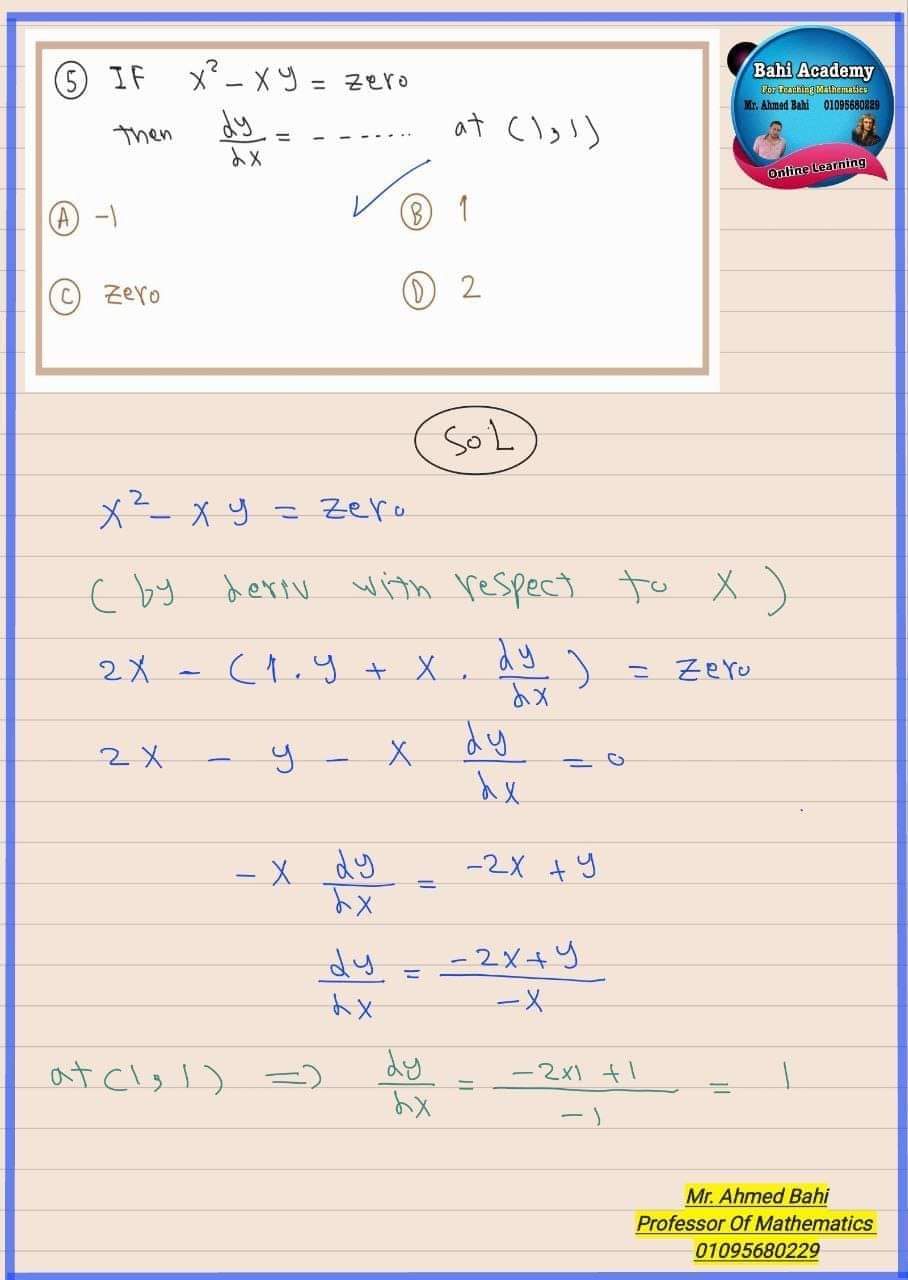 ⑤ IF x² - xy = zero
then dy/dx = - - - - - ...... at (1,1)
Ⓐ -1 Ⓑ 1
Ⓒ zero Ⓓ 2
Bahi Academy
For Teaching Mathematics
Mr. Ahmed Bahi 01095680229
Online Learning
SoL
x² - xy = zero
(by deriv with respect to x)
2x - (1.y + x. dy/dx) = zero
2x - y - x dy/dx = 0
-x dy/dx = -2x + y
dy/dx = (-2x+y)/(-x)
at (1,1) => dy/dx = (-2x1 +1)/(-1) = 1
Mr. Ahmed Bahi
Professor Of Mathematics
01095680229